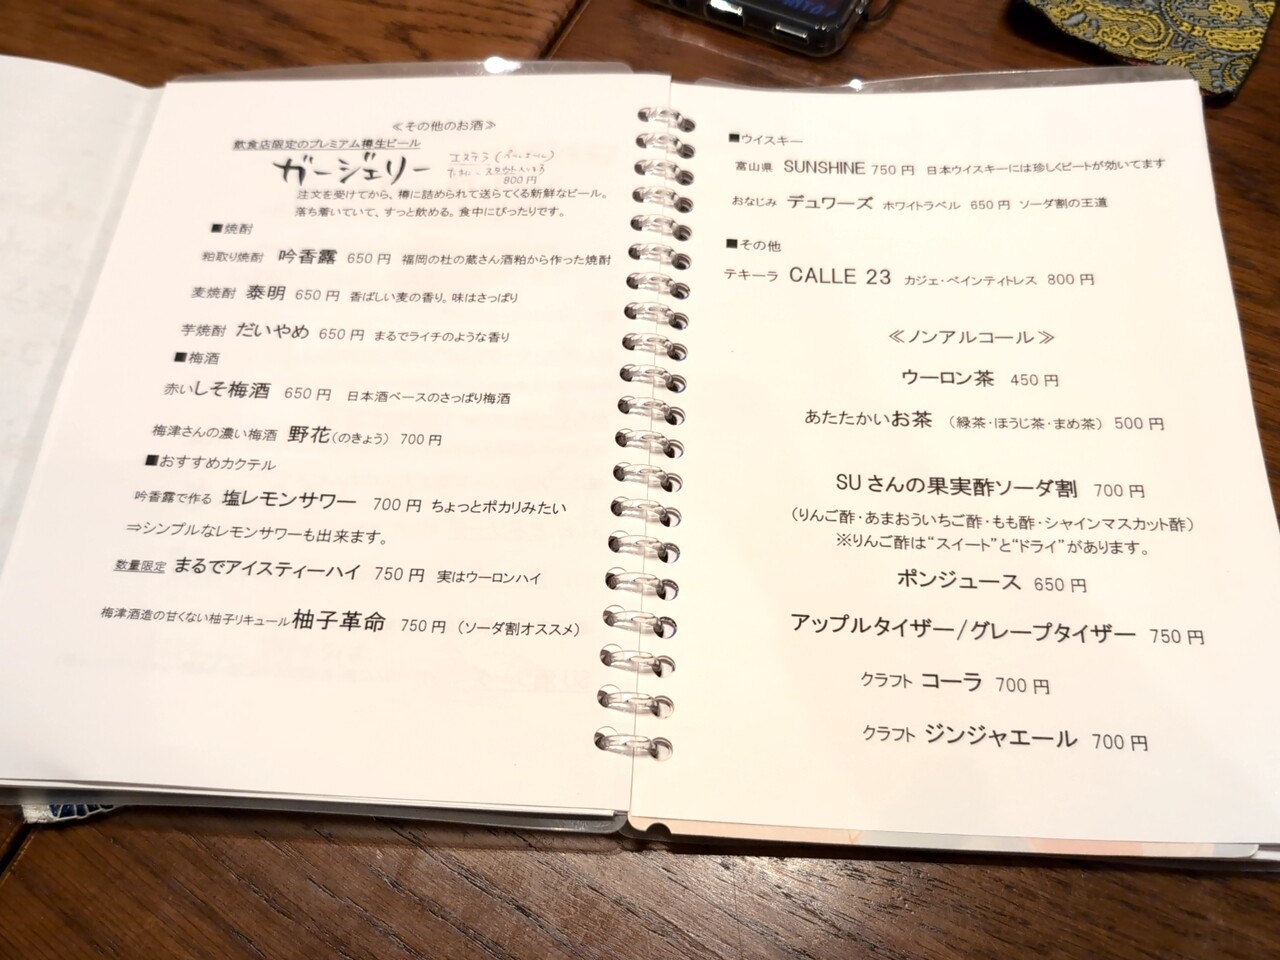 ≪その他のお酒≫
飲食店限定のプレミアム樽生ビール
ガージェリー エステラ(ペールエール)
800円
注文を受けてから、樽に詰められて送られてくる新鮮なビール。
落ち着いていて、すっと飲める。食中にぴったりです。
■焼酎
粕取り焼酎 吟香露 650円 福岡の杜の蔵さん酒粕から作った焼酎
麦焼酎 泰明 650円 香ばしい麦の香り。味はさっぱり
芋焼酎 だいやめ 650円 まるでライチのような香り
■梅酒
赤いしそ梅酒 650円 日本酒ベースのさっぱり梅酒
梅津さんの濃い梅酒 野花(のきょう) 700円
■おすすめカクテル
吟香露で作る 塩レモンサワー 700円 ちょっとポカリみたい
⇒シンプルなレモンサワーも出来ます。
数量限定 まるでアイスティーハイ 750円 実はウーロンハイ
梅津酒造の甘くない柚子リキュール 柚子革命 750円 (ソーダ割オススメ)
■ウイスキー
富山県 SUNSHINE 750円 日本ウイスキーには珍しくピートが効いてます
おなじみ デュワーズ ホワイトラベル 650円 ソーダ割の王道
■その他
テキーラ CALLE 23 カジェ・ベインティトレス 800円
≪ノンアルコール≫
ウーロン茶 450円
あたたかいお茶 (緑茶・ほうじ茶・まめ茶) 500円
SUさんの果実酢ソーダ割 700円
(りんご酢・あまおういちご酢・もも酢・シャインマスカット酢)
※りんご酢は“スイート”と“ドライ”があります。
ポンジュース 650円
アップルタイザー/グレープタイザー 750円
クラフト コーラ 700円
クラフト ジンジャエール 700円